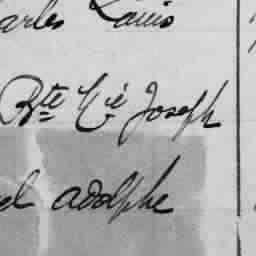 arles Louis
Bte Hé Joseph
el adolphe